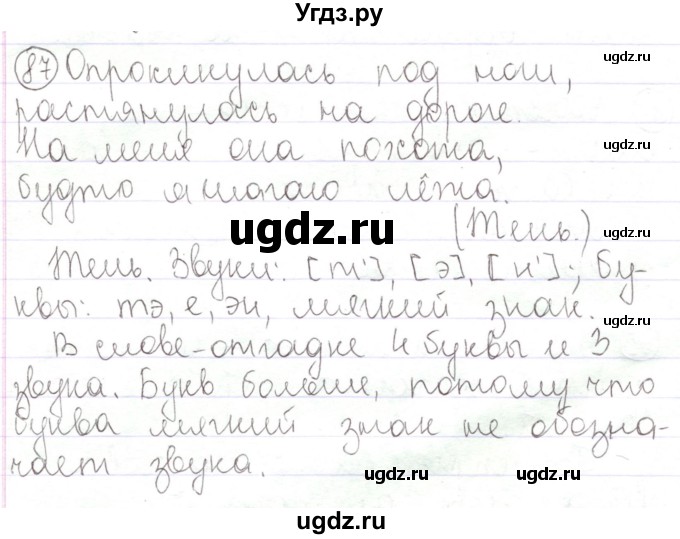 Угдз.ру
87 Опрокинулась под ноги,
растянулась на дороге.
На меня она похожа,
будто я шагаю лёжа.
(Тень.)
Тень. Звуки: [т'], [э], [н']; бу-
квы: тэ, е, эн, мягкий знак.
В слове-отгадке 4 буквы и 3
звука. Букв больше, потому что
буква мягкий знак не обозна-
чает звука.
ugdz.ru
ugdz.ru
ugdz.ru
ugdz.ru
ugdz.ru
ugdz.ru
ugdz.ru
ugdz.ru
ugdz.ru